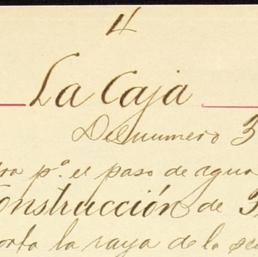 4
La Caja
De numero 3
ra p.º el paso de agua
onstrucción de
orta la raya de la se